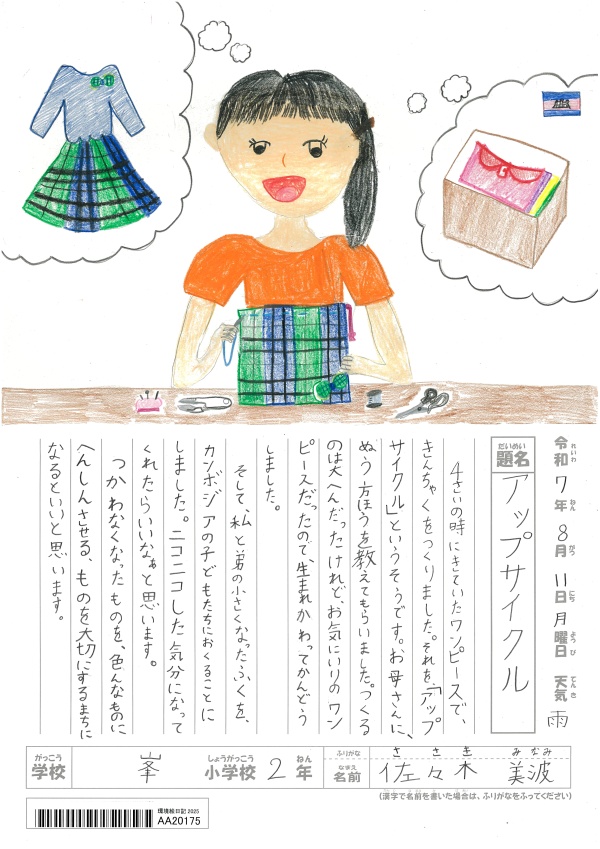 令和7年8月11日月曜日 天気 雨
れいわ ねん がつ にち ようび てんき
だいめい
題名 アップサイクル
4さいの時にきていたワンピースで、
きんちゃくをつくりました。それを、「アップ
サイクル」というそうです。お母さんに、
ぬう方ほうを教えてもらいました。つくる
のは大へんだったけれど、お気にいりのワン
ピースだったので、生まれかわってかんどう
しました。
そして、私と弟の小さくなったふくを、
カンボジアの子どもたちにおくることに
しました。ニコニコした気分になって
くれたらいいなぁと思います。
つかわなくなったものを、色んなものに
へんしんさせる、ものを大切にするまちに
なるといいと思います。
がっこう しょうがっこう ねん
学校 峯 小学校 2年
ふりがな ささき みなみ
なまえ
名前 佐々木 美波
(漢字で名前を書いた場合は、ふりがなをふってください)
環境絵日記 2025
AA20175